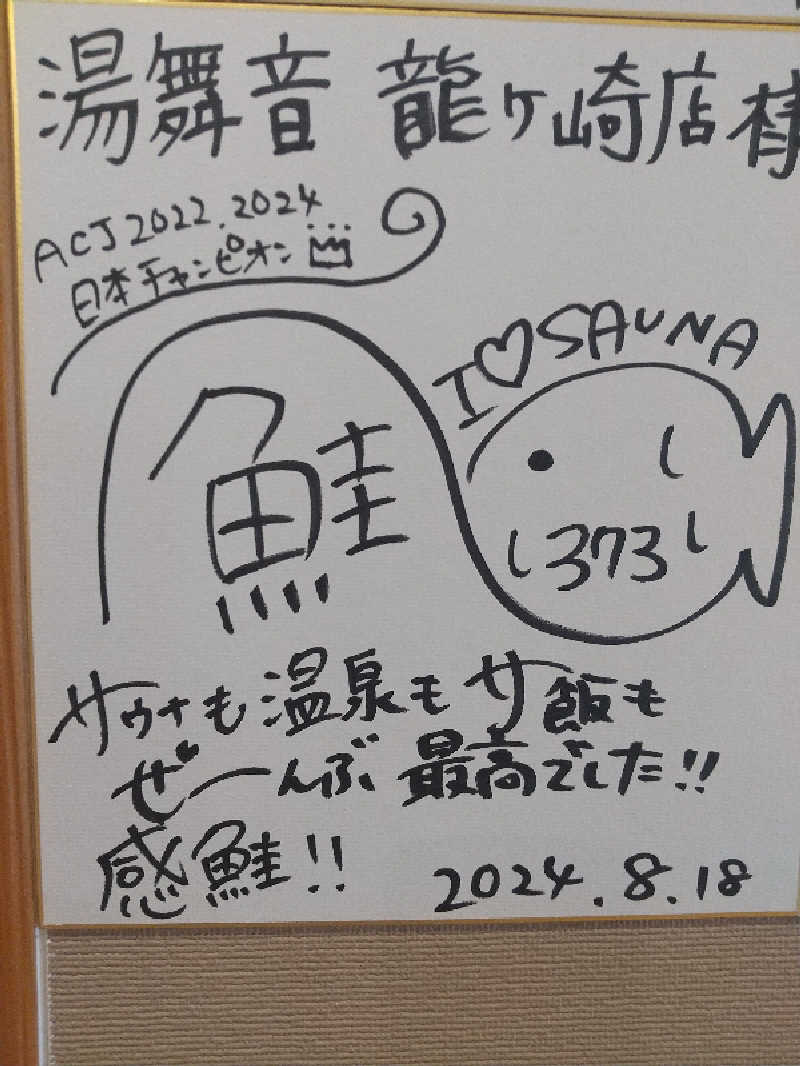 湯舞音 龍ヶ崎店 様
ACJ 2022.2024
日本チャンピオン
I♡SAUNA
鮭
し373し
サウナも温泉もサ飯も
ぜ〜んぶ最高でした!!
感鮭!!
2024.8.18